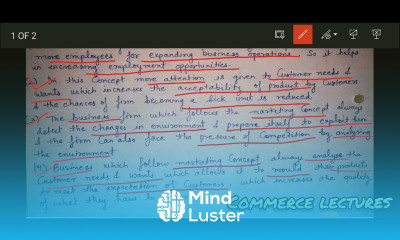 1 OF 2
more employees for expanding business operations. So it helps
in increasing employment opportunities.
2) In this Concept more attention is given to Customer needs &
Wants which increases the acceptability of product by Customer
& the chances of firm becoming a Sick Unit is reduced.
3) The business firm which follows the marketing Concept always
detect the changes in environment & prepare itself to exploit them
& the firm Can also face the pressure of Competition by analysing
the environment.
(4) Business which follow marketing Concept always analyse the
Customer needs & wants which allows it to mould their products
to meet the expectation of Customers, which increases the quality
of what they have to
Mind
Luster
COMMERCE LECTURES